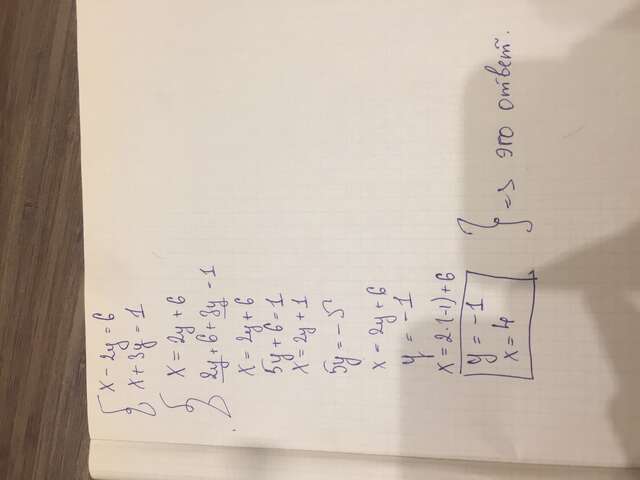 x - 2y = 6
x + 3y = 1
x = 2y + 6
2y + 6 + 3y = 1
x = 2y + 6
5y + 6 = 1
x = 2y + 1
5y = -5
x = 2y + 6
y = -1
x = 2·(-1) + 6
y = -1
x = 4
} => это ответ.